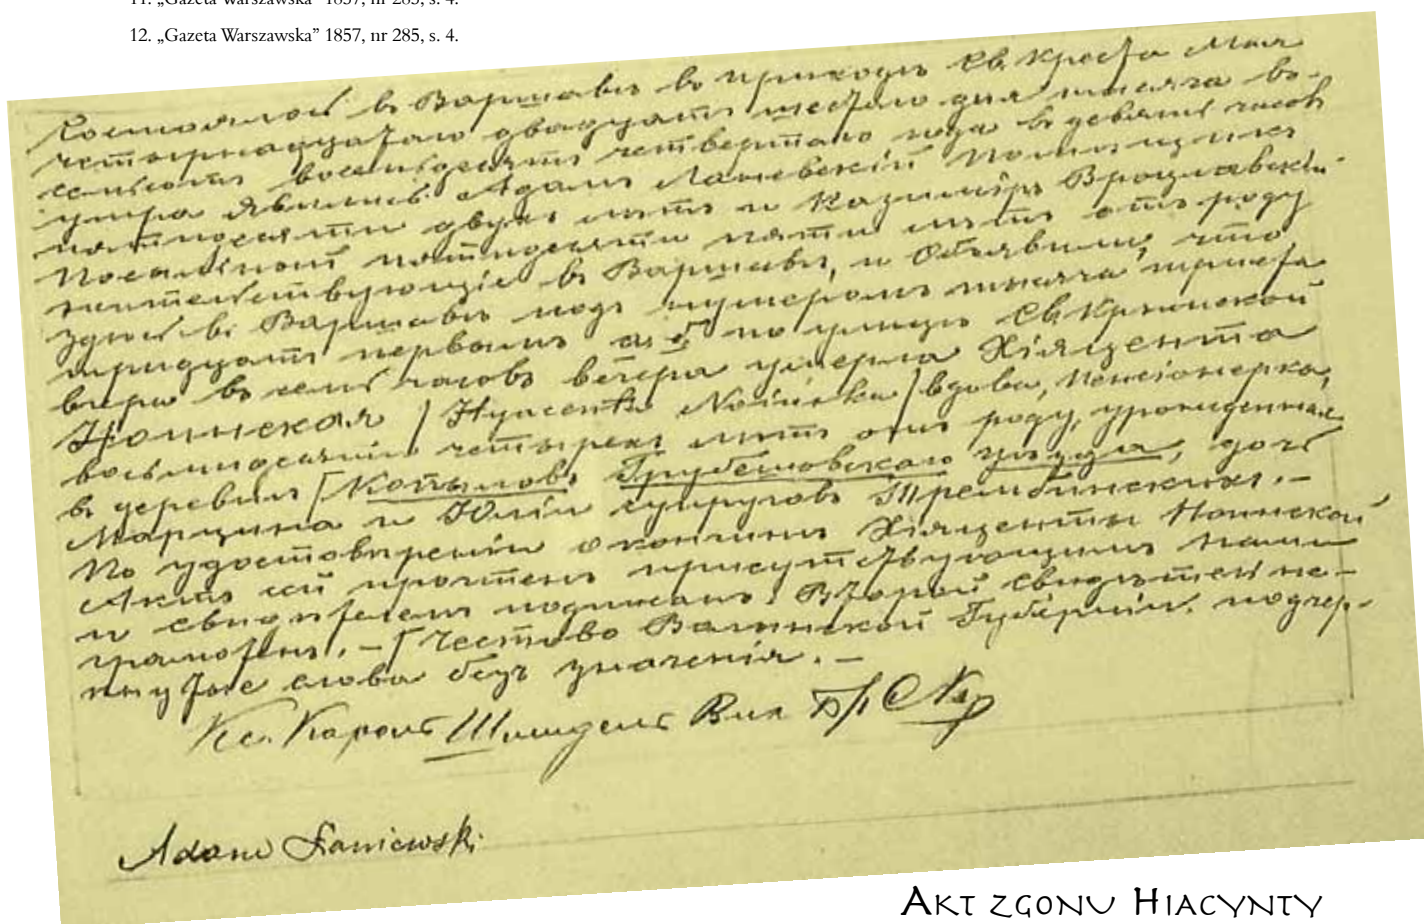 11. „Gazeta Warszawska” 1857, nr 283, s. 4.
12. „Gazeta Warszawska” 1857, nr 285, s. 4.
Состоялось въ Варшавѣ въ приходѣ Св. Креста Мая
четырнадцатаго двадцать шестаго дня тысяча во-
семьсотъ восемьдесятъ четвертаго года въ девять часовъ
утра явились Адамъ Ланевскій Помѣщикъ
пятидесяти двухъ лѣтъ и Казиміръ Вроцлавскій
пятидесяти пяти лѣтъ отъ роду
жительствующіе въ Варшавѣ, и объявили, что
здѣсь въ Варшавѣ подъ нумеромъ тысяча триста
тридцать первымъ по улицѣ Св. Крыжской
вчера въ семь часовъ вечера умерла Хіяцента
Ноинская /Hyacenta Noińska/ вдова, пенсіонерка,
восьмидесяти четырехъ лѣтъ отъ роду, урожденная
въ деревнѣ Грубешовскаго уѣзда, дочь
Марцина и Юліи супруговъ Трембинскихъ. –
По удостовѣреніи о кончинѣ Хіяценты Ноинской
Актъ сей прочтенъ присутствующимъ Нами
и свидѣтелемъ подписанъ. Второй свидѣтель не-
грамотенъ. – Губерніи. подчер-
кнутые слова безъ значенія. –
Кс. Кароль
Adam Łaniewski
Akt zgonu Hiacynty